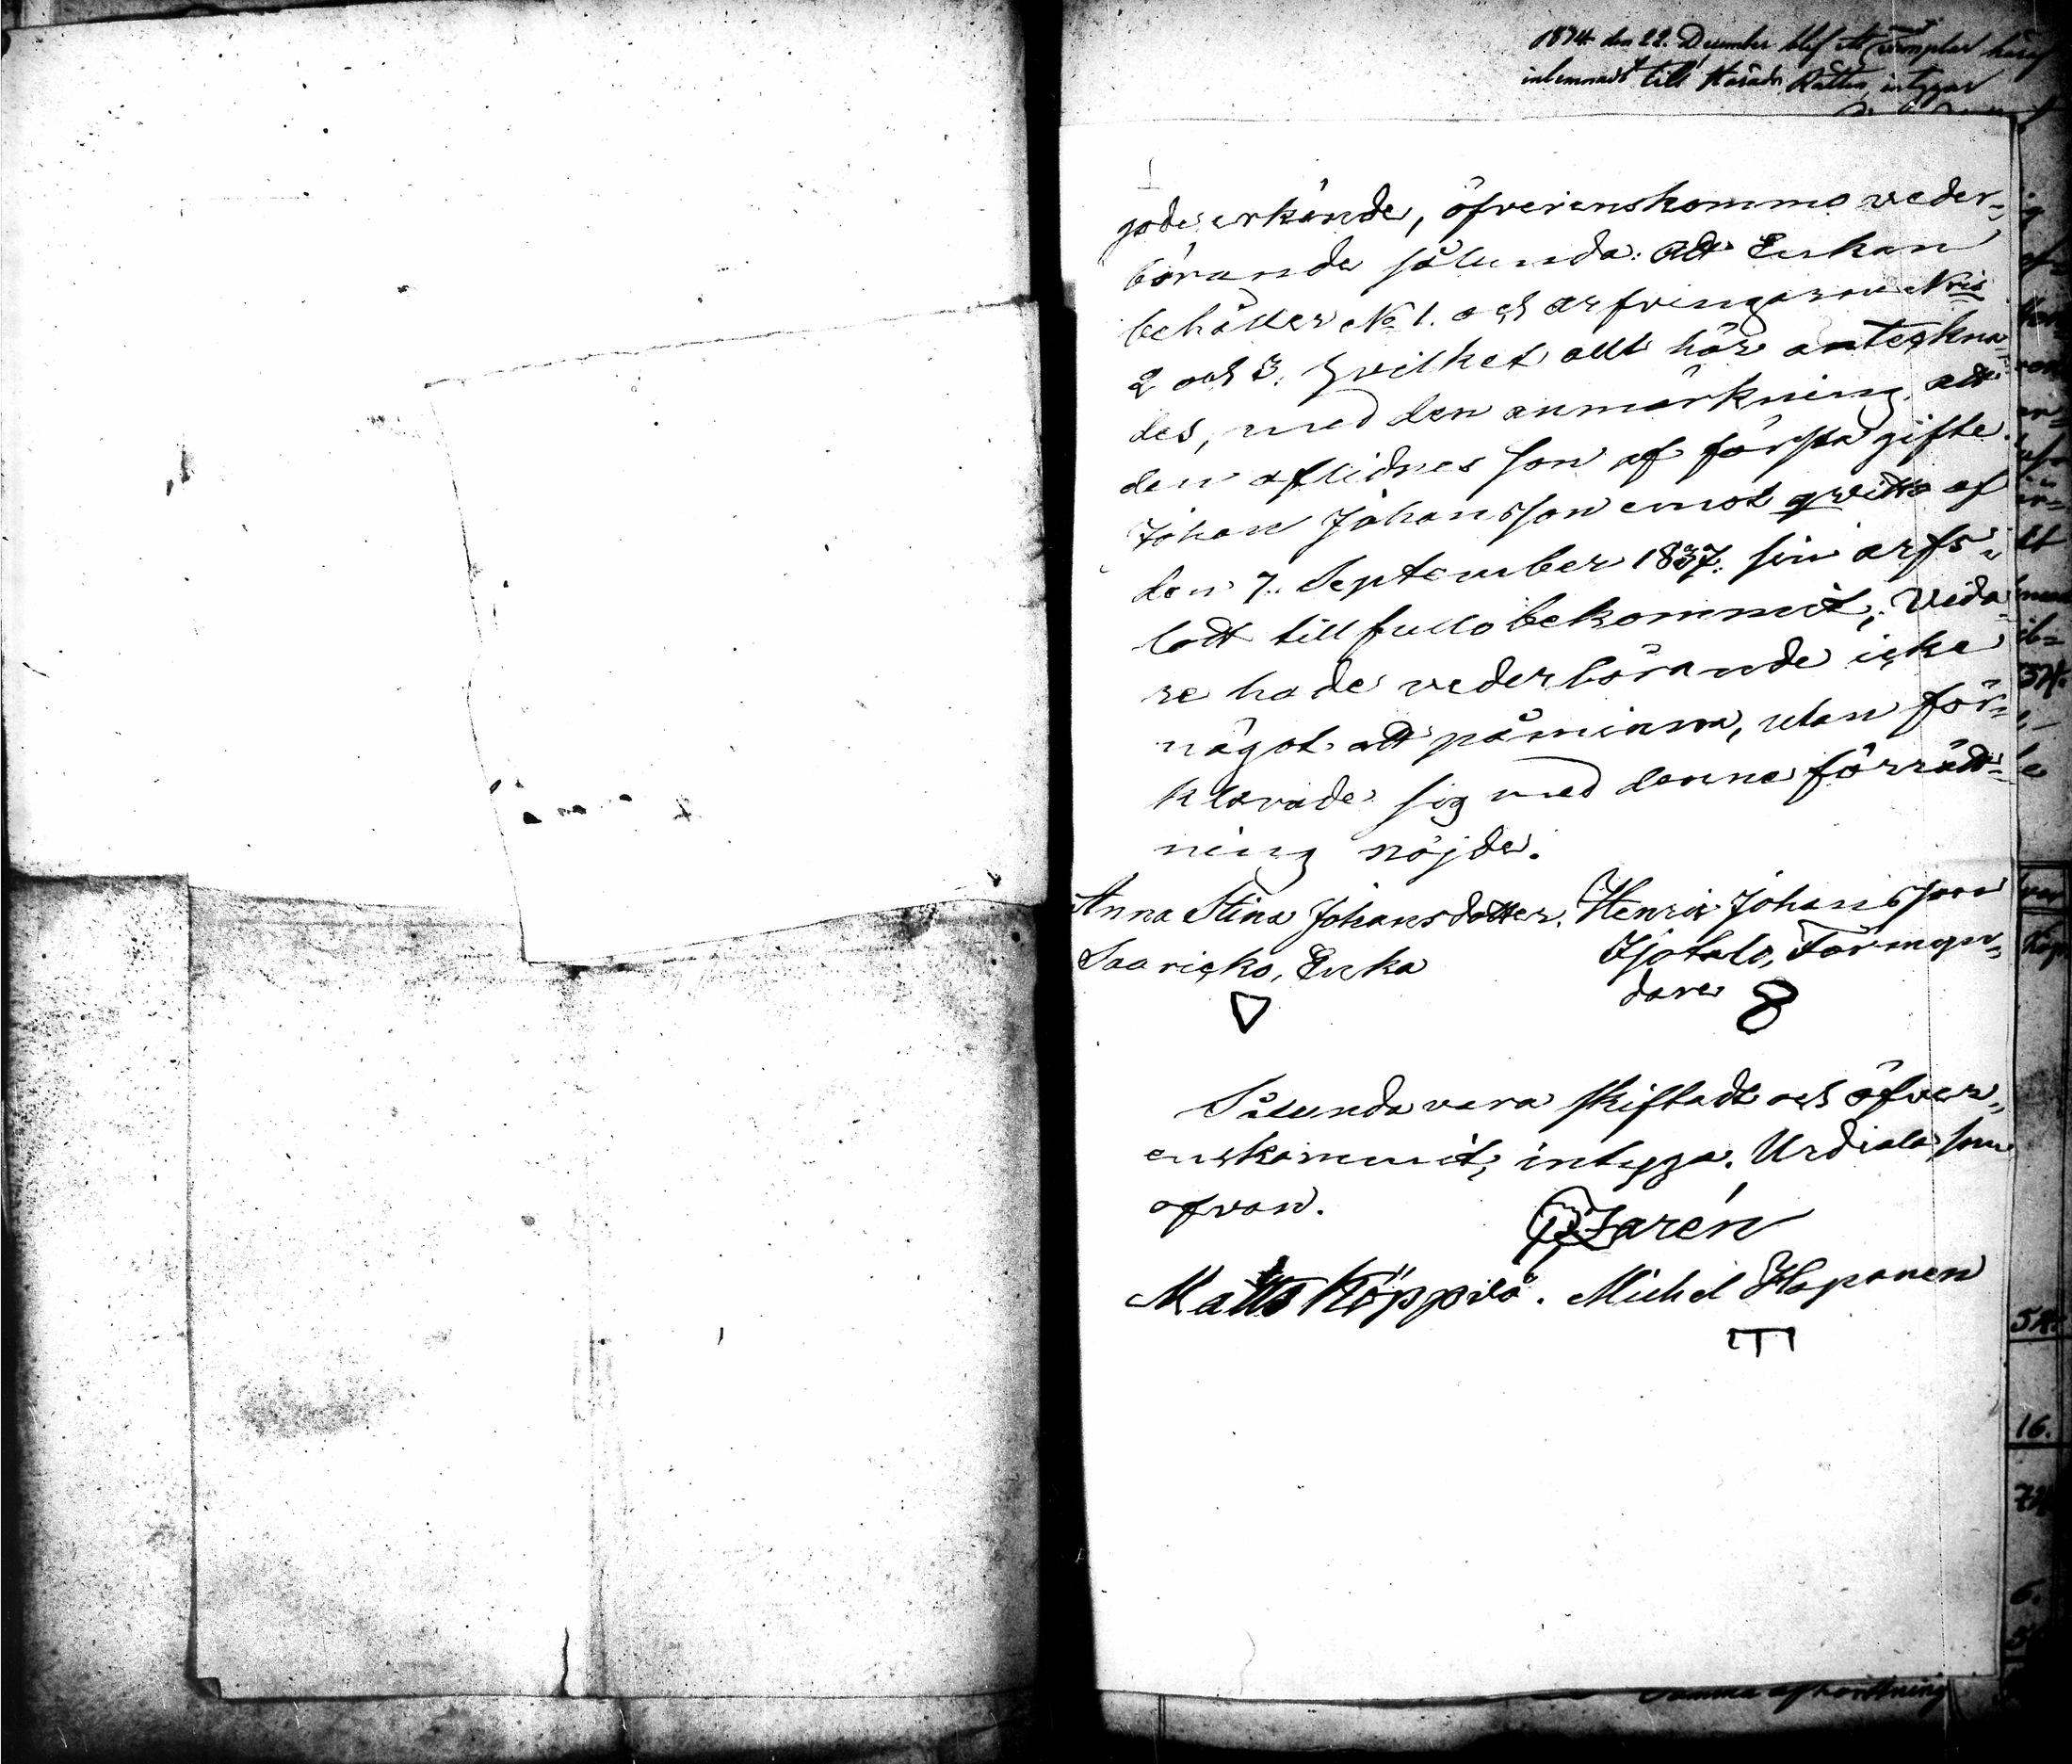 1874 den 22. December blef ett Exemplar häraf
inlemnadt till Härads Rätten, intygar
gode erkände, öfverenskommo veder-
börande sålunda: att Enkan
behåller No 1. och arfvingarne Nris
2 och 3. Hvilket allt här anteckna-
des, med den anmärkning, att
den aflidnes son af första gifte
Johan Johansson emot qvitto af
den 7. September 1837. sin arfs-
lott till fullo bekommit; Vida-
re hade vederbörande icke
något att påminna, utan för-
klarade sig med denna förrätt-
ning nöjde.
Anna Stina Johansdotter. Henric Johansson
Saaricko, Enka Isotalo, Förmyn-
dare 8
Sålunda vara skiftadt och öfver-
enskommit; intyga. Urdiala, som
ofvan.
Zarén
Matts Köppilä. Michel Haponen
16.
6.
Summa afkortning